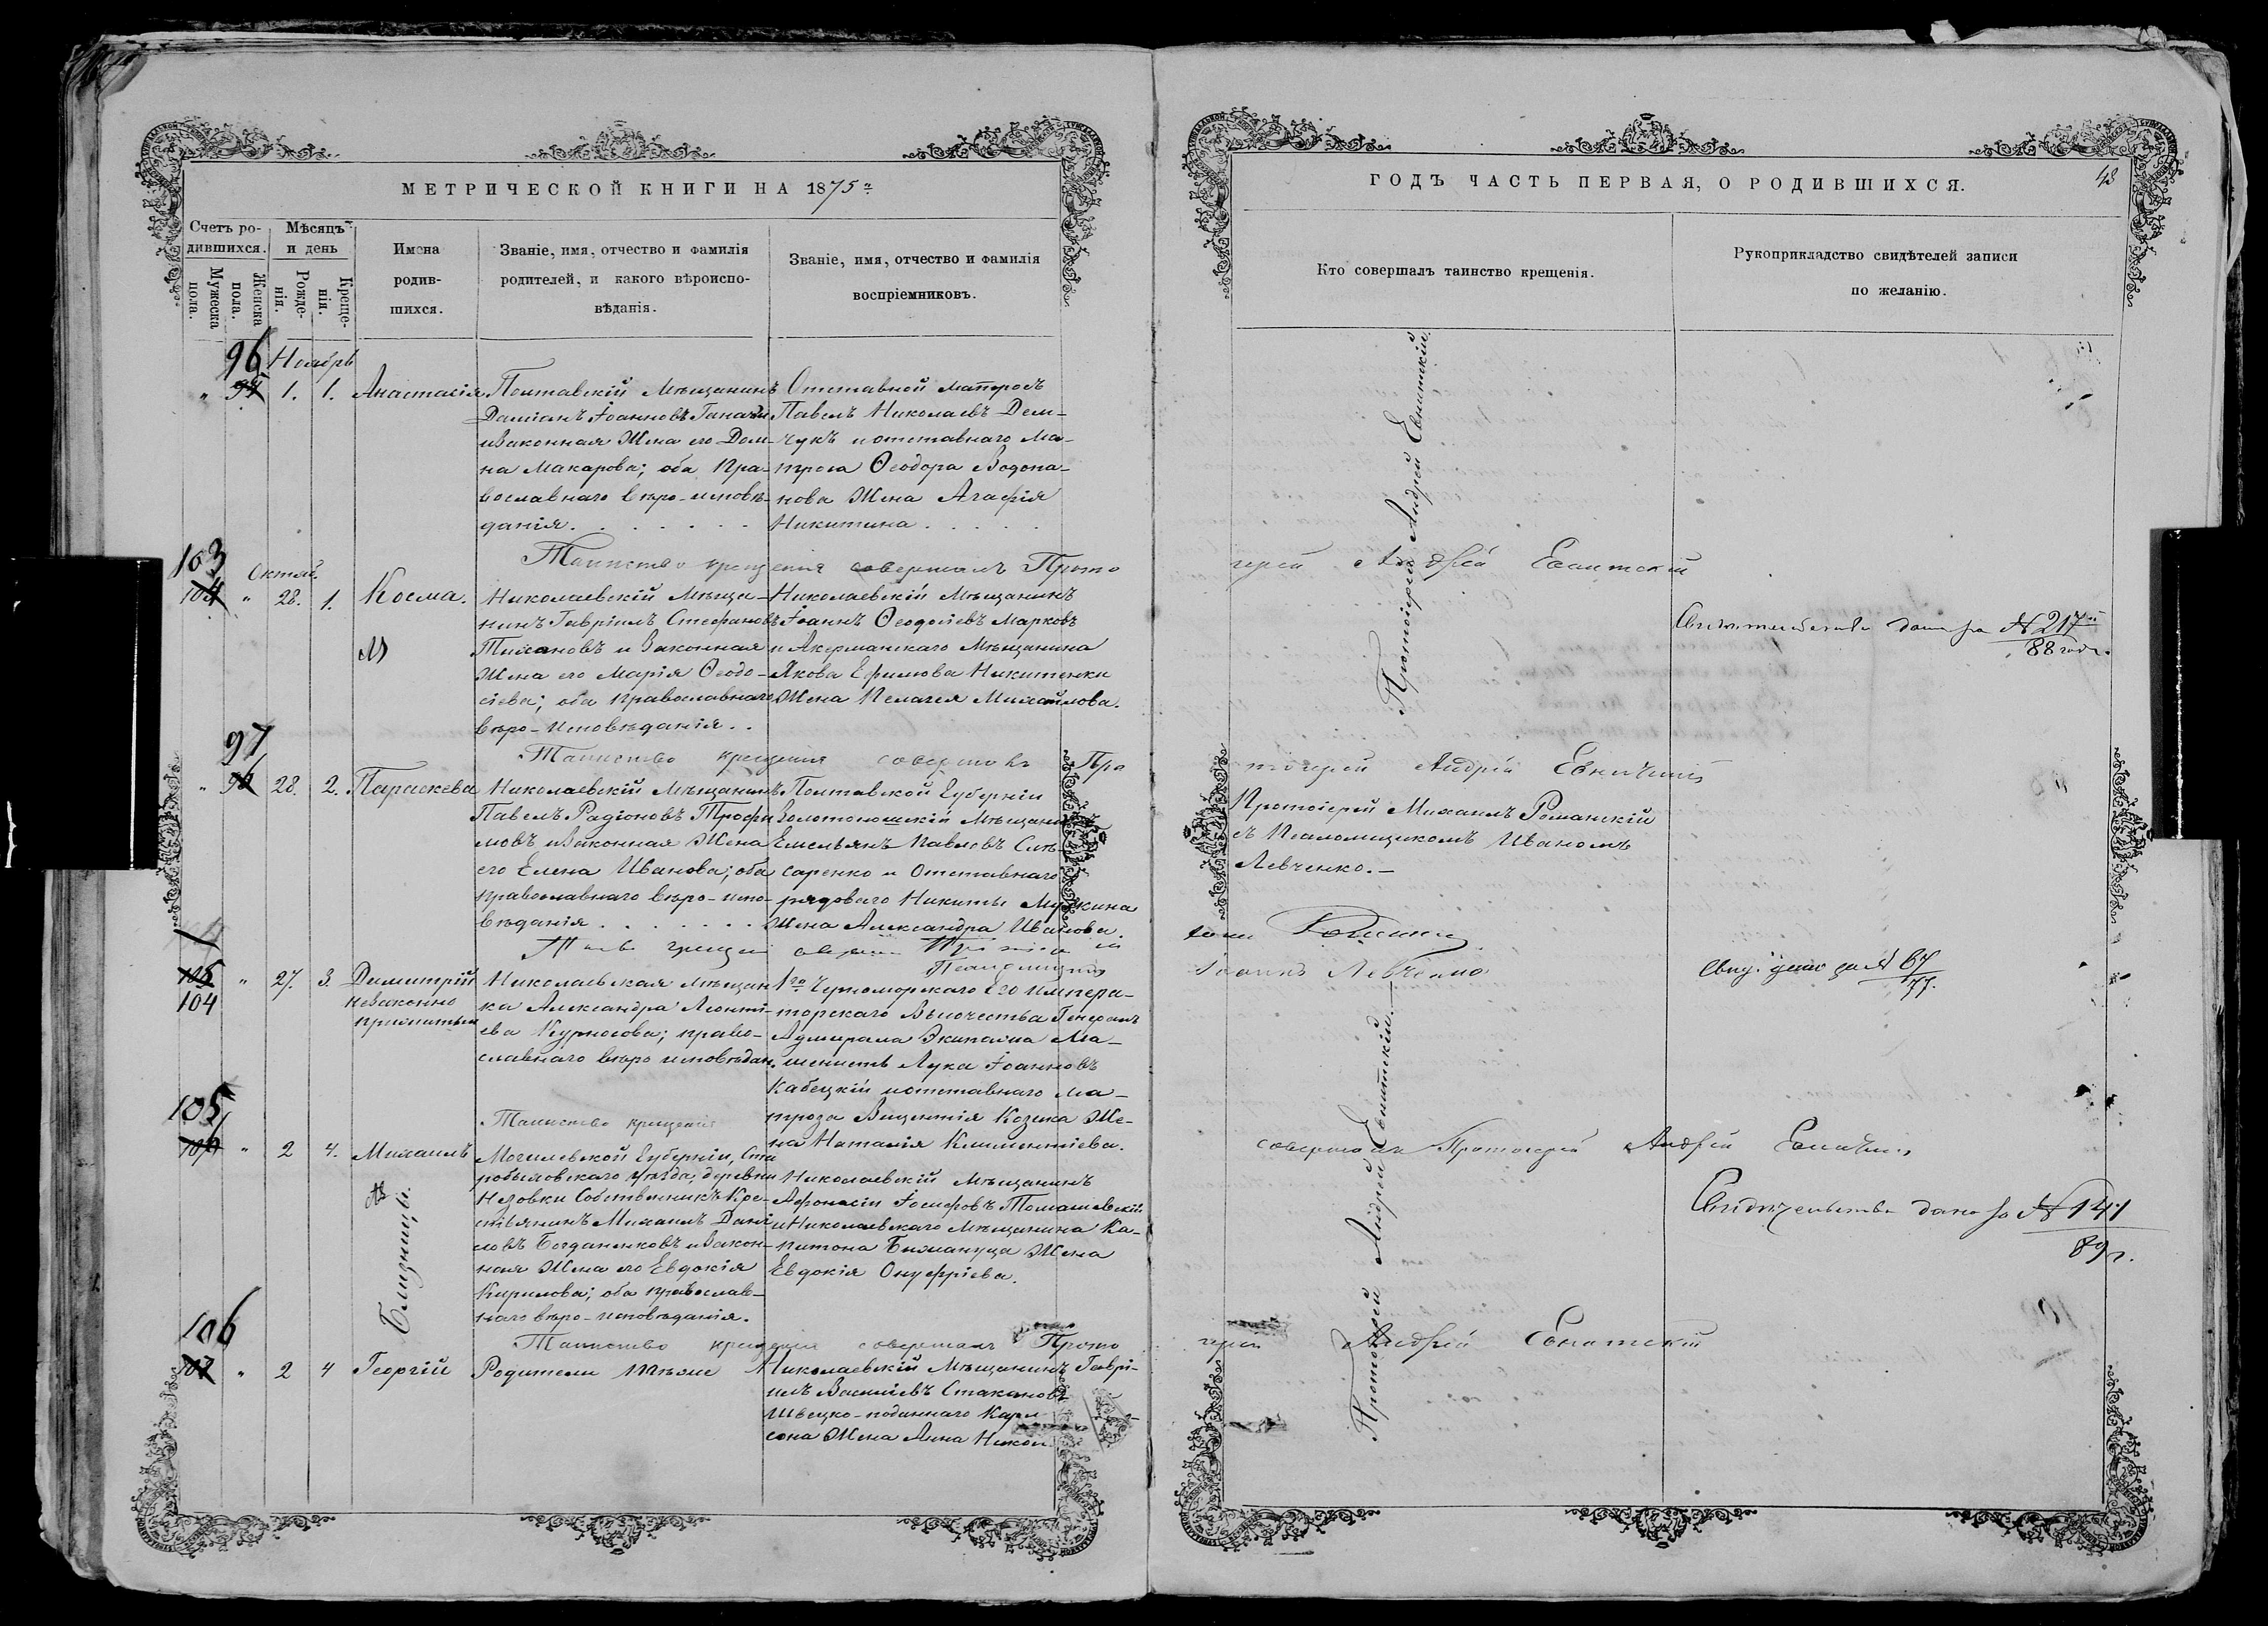 МЕТРИЧЕСКОЙ КНИГИ НА 1875 г
Счетъ ро-
дившихся.
Мѣсяцъ
и день
Мужеска
пола.
Женска
пола.
Рожде-
нія.
Креще-
нія.
Имена
родив-
шихся.
Званіе, имя, отчество и фамилія
родителей, и какого вѣроиспо-
вѣданія.
Званіе, имя, отчество и фамилія
воспріемниковъ.
96 Ноябрь
" 1. 1. Анастасія
Полтавскій Мѣщанинъ
Даміанъ Іоанновъ
и законная Жена его Дом-
на Макарова; оба пра-
вославнаго вѣро-исповѣ-
данія.
Отставной матросъ
Павелъ Николаевъ Дем-
чукъ и отставнаго ма-
троса Ѳеодора Водопа-
нова Жена Агафія
Никитина
Таинство крещенія совершалъ Прото
103
Октяб.
104 " 28. 1. Косма.
Николаевскій Мѣща-
нинъ Гавріилъ Стефановъ
и законная
Жена его Марія Ѳеодо-
сіева; оба православнаго
вѣро-исповѣданія..
Николаевскій Мѣщанинъ
Іоаннъ Ѳеодосіевъ Марковъ
и Акерманскаго Мѣщанина
Якова Ефимова Никитенки
Жена Пелагея Михайлова.
97
Таинство крещенія совершалъ Про
" 28. 2. Параскева
Николаевскій Мѣщанинъ
Павелъ Радіоновъ Трофи
мовъ и законная Жена
его Елена Иванова; оба
православнаго вѣро-испо-
вѣданія
Полтавской Губерніи
Золотоношскій Мѣщанинъ
Емельянъ Павловъ Слѣ-
саренко и Отставнаго
рядоваго Никиты
Жена Александра Иванова.
105
104
" 27. 3. Димитрій
незаконно
прижитый
Николаевская мѣщан
ка Александра Леонті-
ева Курносова; право-
славнаго вѣро исповѣдан.
1го Черноморскаго Его Импера-
торскаго Высочества Генералъ
Адмирала Экипажа Ма-
шинистъ Лука Іоанновъ
Кабецкій и отставнаго ма-
троза Викентія Козека Же-
на Наталія Климентіева.
105
Таинство крещенія
106 " 2 4. Михаилъ
Близнецы.
Могилевской Губерніи, Ста
робыховскаго уѣзда, деревни
Незовки Собственникъ Кре-
стьянинъ Михаилъ Дани
ловъ Богданенковъ и закон-
ная Жена его Евдокія
Кирилова; оба православ-
наго вѣро-исповѣданія.
Николаевскій Мѣщанинъ
Афонасіи Іосифовъ Томашевскій
и Николаевскаго Мѣщанина Ка-
питона Жена
Евдокія Онуфріева.
106
Таинство крещенія совершалъ Прото
107 " 2 4 Георгій
Родители тѣже
Николаевскій Мѣщанинъ Гаврі-
илъ Василіевъ Стакановъ
Шведско-поданнаго Карл
сона Жена Анна Никол
ГОДЪ ЧАСТЬ ПЕРВАЯ, О РОДИВШИХСЯ.
48
Кто совершалъ таинство крещенія.
Рукоприкладство свидѣтелей записи
по желанію.
іерей Андрей
Протоіерей Андрей
Свидетельство дано за № 217
88 года.
тоіерей Андрей
Протоіерей Михаилъ Романскій
съ Псаломщикомъ Иваномъ
Левченко.
Іоаннъ Левченко
Свид. дано за № 67
77.
совершалъ Протоіерей Андрей
Свидетельство дано за № 141
89 г.
Протоіерей Андрей
іерей Андрей